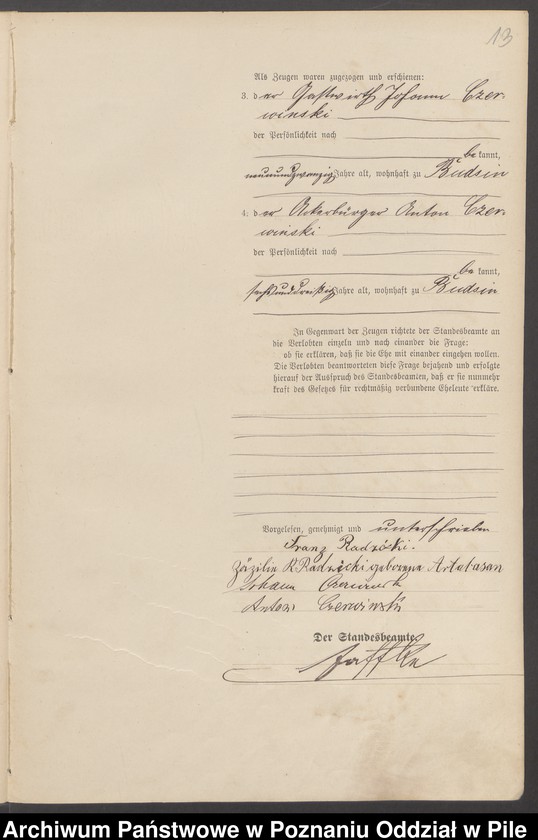 13
Als Zeugen waren zugezogen und erschienen:
3. der Gastwirth Johann Czer-
winski
der Persönlichkeit nach
bekannt,
neunundzwanzig Jahre alt, wohnhaft zu Budsin
4. der Ackerbürger Anton Czer-
winski
der Persönlichkeit nach
bekannt,
sechsunddreißig Jahre alt, wohnhaft zu Budsin
In Gegenwart der Zeugen richtete der Standesbeamte an
die Verlobten einzeln und nach einander die Frage:
ob sie erklären, daß sie die Ehe mit einander eingehen wollen.
Die Verlobten beantworteten diese Frage bejahend und erfolgte
hierauf der Ausspruch des Standesbeamten, daß er sie nunmehr
kraft des Gesetzes für rechtmäßig verbundene Eheleute erkläre.
Vorgelesen, genehmigt und unterschrieben
Franz Radzicki.
Zäzilie Radzicki geborene Artabasan
Johann
Anton Czerwinski
Der Standesbeamte
Jaffke
Archiwum Państwowe w Poznaniu Oddział w Pile